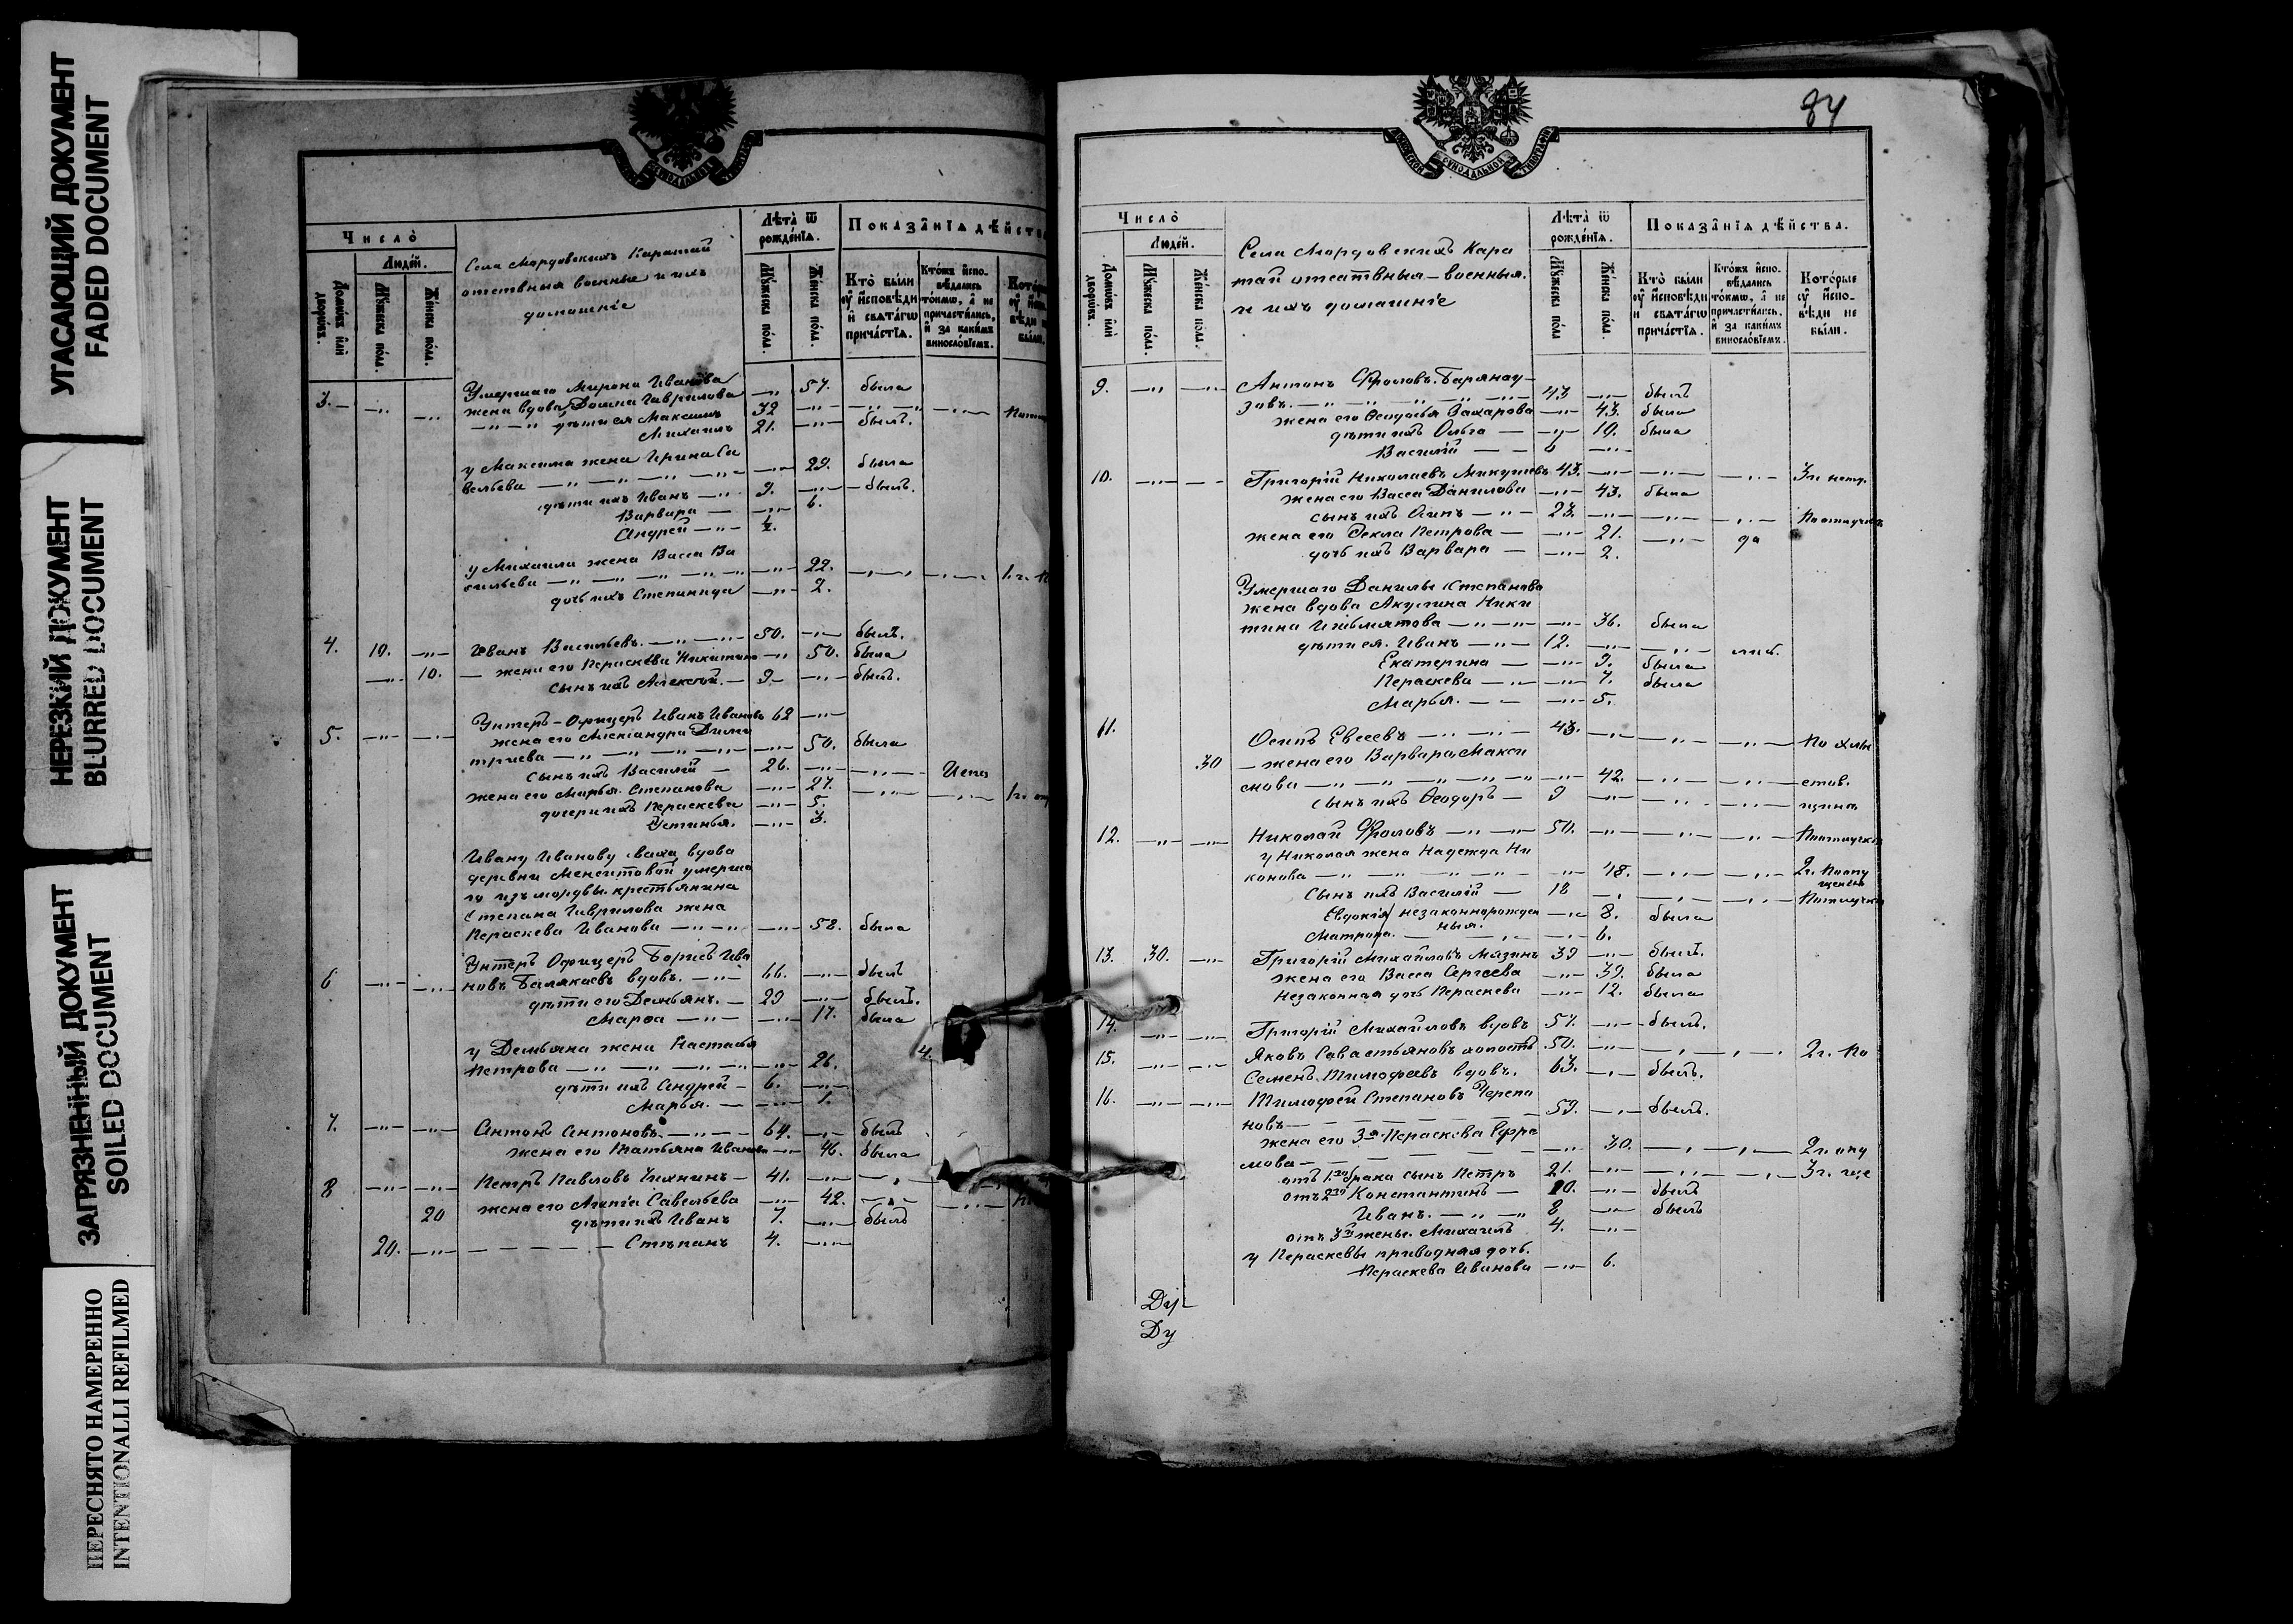 УГАСАЮЩИЙ ДОКУМЕНТ
FADED DOCUMENT
НЕРЕЗКИЙ ДОКУМЕНТ
BLURRED DOCUMENT
ЗАГРЯЗНЕННЫЙ ДОКУМЕНТ
SOILED DOCUMENT
ПЕРЕСНЯТО НАМЕРЕННО
INTENTIONALLI REFILMED
Число̀
Людéй.
Домѡвъ или дворѡвъ.
Мꙋжеска полꙋ.
Женска полꙋ.
Села Мордовскихъ Каратай
отставныя военные и ихъ
домашніе
Лѣта̀ ѿ рождéнїѧ.
Мꙋжеска полꙋ.
Женска полꙋ.
Показа̑нїѧ дѣйства
Кто̀ были ᲂу҆ и҆сповѣди и҆ свѧта́гѡ причáстїѧ.
Кто́жъ и҆спо-вѣдались то́кмѡ, а҆ не причасти́лись, и҆ за каки́мъ виносло́вїемъ.
3. Умершаго Мирона Иванова
жена вдова, Домна Гаврилова 57. была
дѣти ея Максимъ 32
Михаилъ 21. былъ.
у Максима жена Ирина Са
вельева 29. была
дѣти ихъ Иванъ 9. былъ.
Варвара 6.
Андрей ½.
у Михаила жена Васса Ва
сильева 22. 1.г.
дочь ихъ Степанида 2.
4. 10. Иванъ Васильевъ. 50. былъ.
10. жена его Параскева Никитина 50. была
сынъ ихъ Алексѣй. 9. былъ.
5. Унтеръ-Офицеръ Иванъ Ивановъ 62
жена его Александра Дими
тріева 50. была
сынъ ихъ Василій 26.
жена его Марья Степанова 27. 1г.
дочери ихъ Параскева 5.
Устинья. 3.
Ивану Иванову сваха, вдова
деревни Менситовой умерша
го изъ мордвы крестьянина
Степана Гаврилова жена
Параскева Иванова 58. была
6 Унтеръ Офицеръ Борисъ Ива
новъ Балакаевъ вдовъ. 66. былъ
дѣти его Демьянъ. 29 былъ.
Марѳа 17. была
у Демьяна жена Настасья 4.
Петрова 26.
дѣти ихъ Андрей 6.
Марья. 1.
7. Антонъ Антоновъ. 64. былъ
жена его Татьяна Иванова 46. была
8 Петръ Павловъ 41.
20 жена его Агапіа Савельева 42.
дѣти ихъ Иванъ 7. былъ
20. Степанъ 4.
84
СѴНОДАЛЬНОЙ ТИПОГРАФІИ
Число̀
Людéй.
Домѡвъ или дворѡвъ.
Мꙋжеска полꙋ.
Женска полꙋ.
Села Мордовскихъ Кара
тай отставныя-военныя.
и ихъ домашніе
Лѣта̀ ѿ рождéнїѧ.
Мꙋжеска полꙋ.
Женска полꙋ.
Показа̑нїѧ дѣйства.
Кто̀ были ᲂу҆ и҆сповѣди и҆ свѧта́гѡ причáстїѧ.
Кто́жъ и҆спо-вѣдались то́кмѡ, а҆ не причасти́лись, и҆ за каки́мъ виносло́вїемъ.
Кото́рые ᲂу҆ и҆спо-вѣди не бы́ли.
9. Антонъ Фроловъ Барянау-
зовъ. 43 былъ
жена его Ѳеодосья Захарова 43. была
дѣти ихъ Ольга 10. была
Василій
10. Григорій Николаевъ 43. 3г.
жена его Васса Данилова 43. была
сынъ ихъ Осипъ 23. По отлучкѣ
жена его Ѳекла Петрова 21. да
дочь ихъ Варвара 2.
Умершаго Данилы Степанова
жена вдова Акулина Ники
тина 36. была
дѣти ея. Иванъ 12.
Екатерина 9. была
Параскева 7. была
Марья. 5.
11. Осипъ Евсеевъ 43.
30 жена его Варвара Макси
мова 42.
сынъ ихъ Ѳеодоръ 9
12. Николай Фроловъ 50. По отлучкѣ
у Николая жена Надежда Ни
конова 48. 2г. По опу
щенію
сынъ ихъ Василій 18 По отлучкѣ
Евдокія незаконнорожден 8. была
Матрона. ныя. 6.
13. 30. Григорій Михайловъ Мязинъ 39 былъ.
жена его Васса Сергеева 39. была
Незаконная дочь Параскева 12. была
14. Григорій Михайловъ вдовъ 57. былъ.
15. Яковъ Савастьяновъ холостъ 50. 2г. По
Семенъ Тимофеевъ вдовъ. 63. былъ.
16. Тимофей Степановъ Черепа
новъ 59. былъ.
жена его 3я Параскева Ефре
мова 30. 2г. опу
отъ 1го брака сынъ Петръ 21. 3г. ще
отъ 2го Константинъ 10. былъ
Иванъ. 8 былъ
отъ 3й жены. Михаилъ 4.
у Параскевы приводная дочь.
Параскева Иванова 6.
Ду
Ду